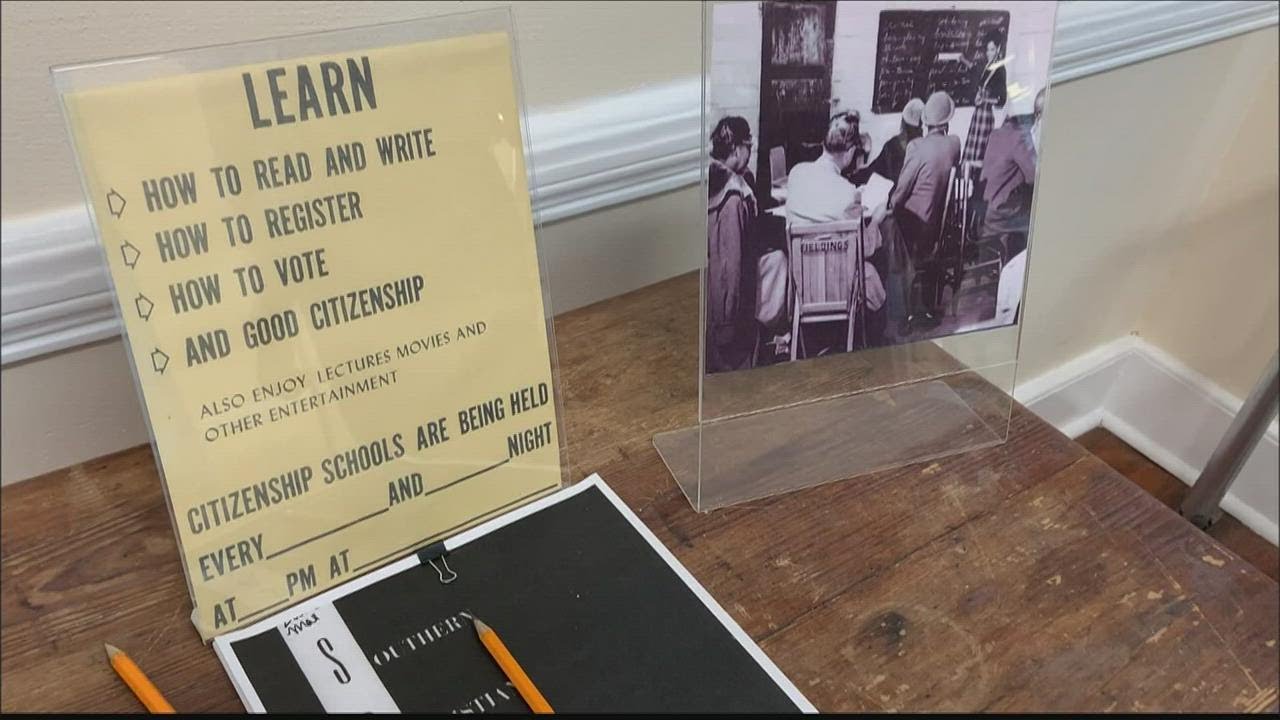 LEARN
HOW TO READ AND WRITE
HOW TO REGISTER
HOW TO VOTE
AND GOOD CITIZENSHIP
ALSO ENJOY LECTURES MOVIES AND
OTHER ENTERTAINMENT
CITIZENSHIP SCHOOLS ARE BEING HELD
EVERY__________AND_______NIGHT
AT____PM AT______________
FIELDINGS
SOUTHERN